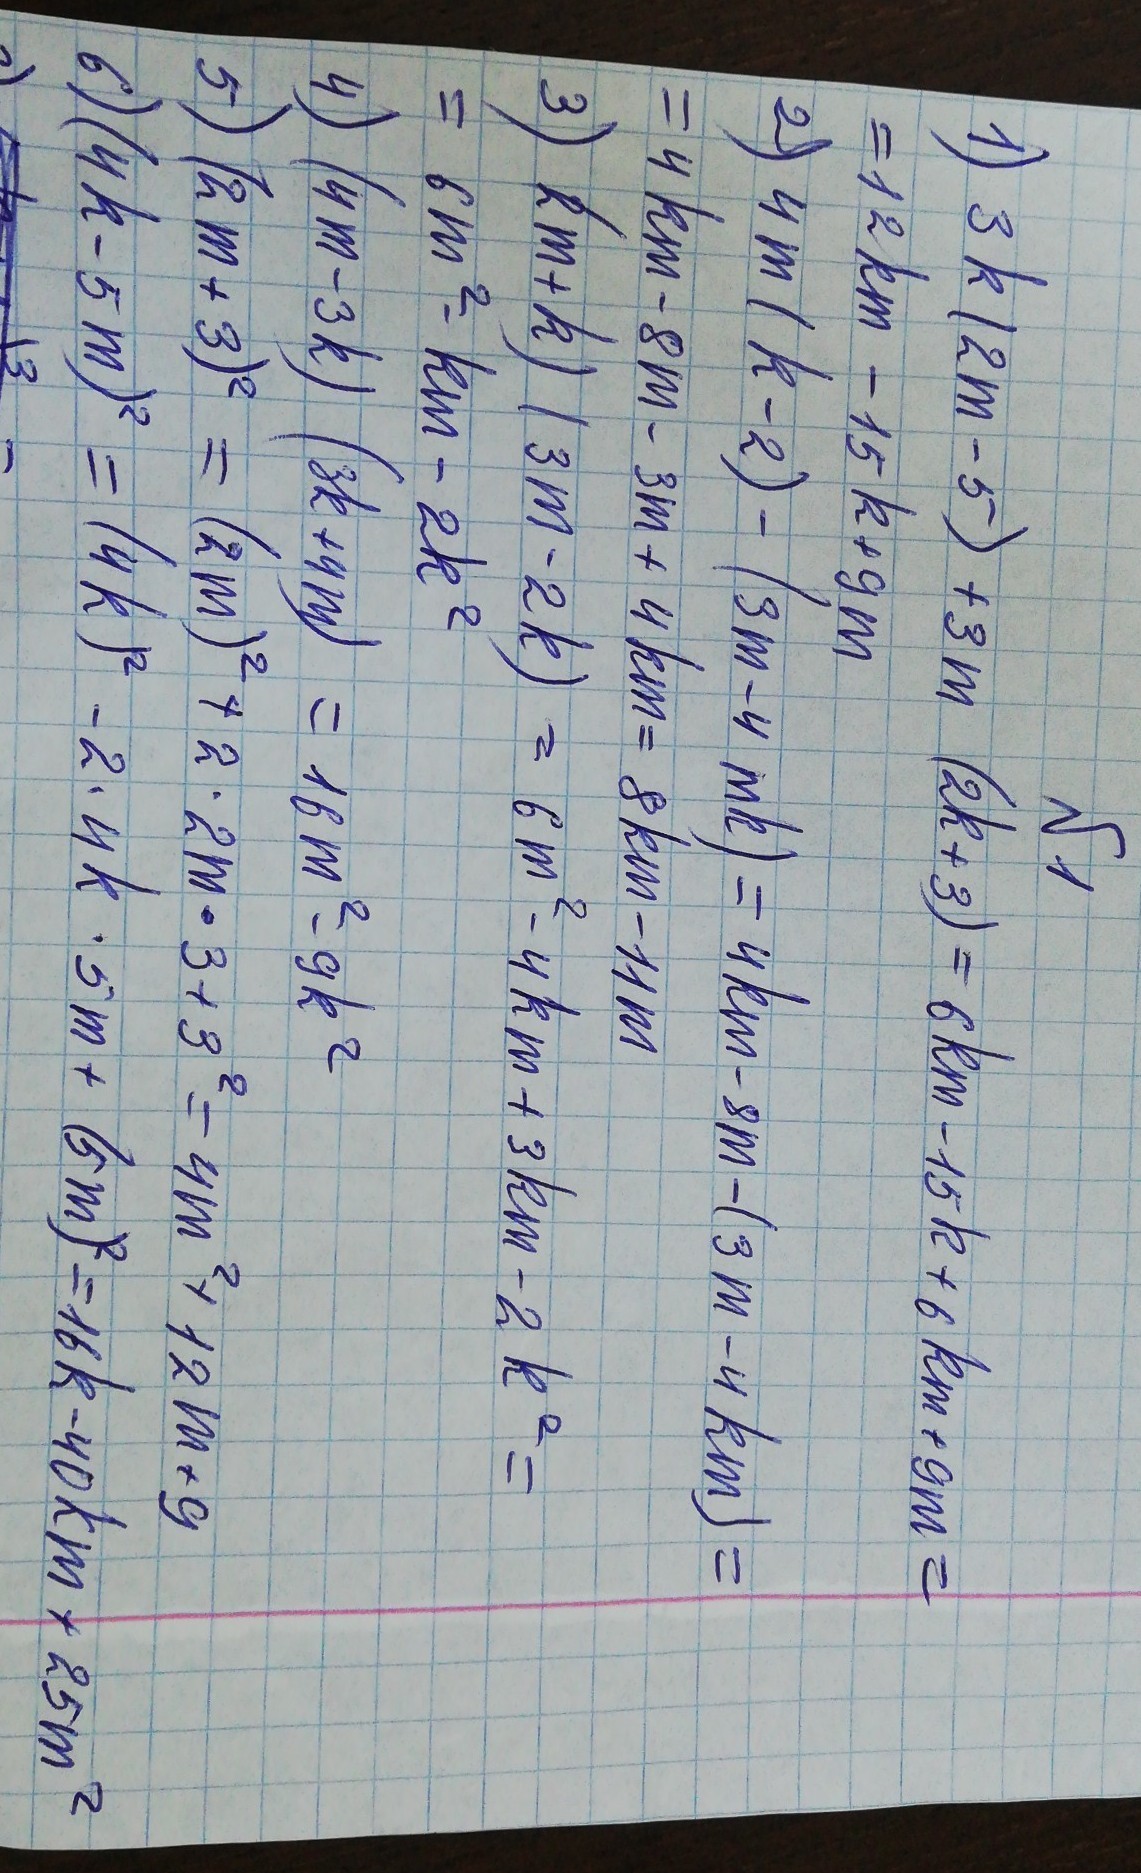 №1
1) 3k(2m-5)+3m(2k+3)=6km-15k+6km+9m=
=12km-15k+9m
2) 4m(k-2)-(3m-4mk)=4km-8m-(3m-4km)=
=4km-8m-3m+4km=8km-11m
3) (m+k)(3m-2k)=6m²-4km+3km-2k²=
=6m²-km-2k²
4) (4m-3k)(3k+4m)=16m²-9k²
5) (2m+3)²=(2m)²+2·2m·3+3²=4m²+12m+9
6) (4k-5m)²=(4k)²-2·4k·5m+(5m)²=16k-40km+25m²